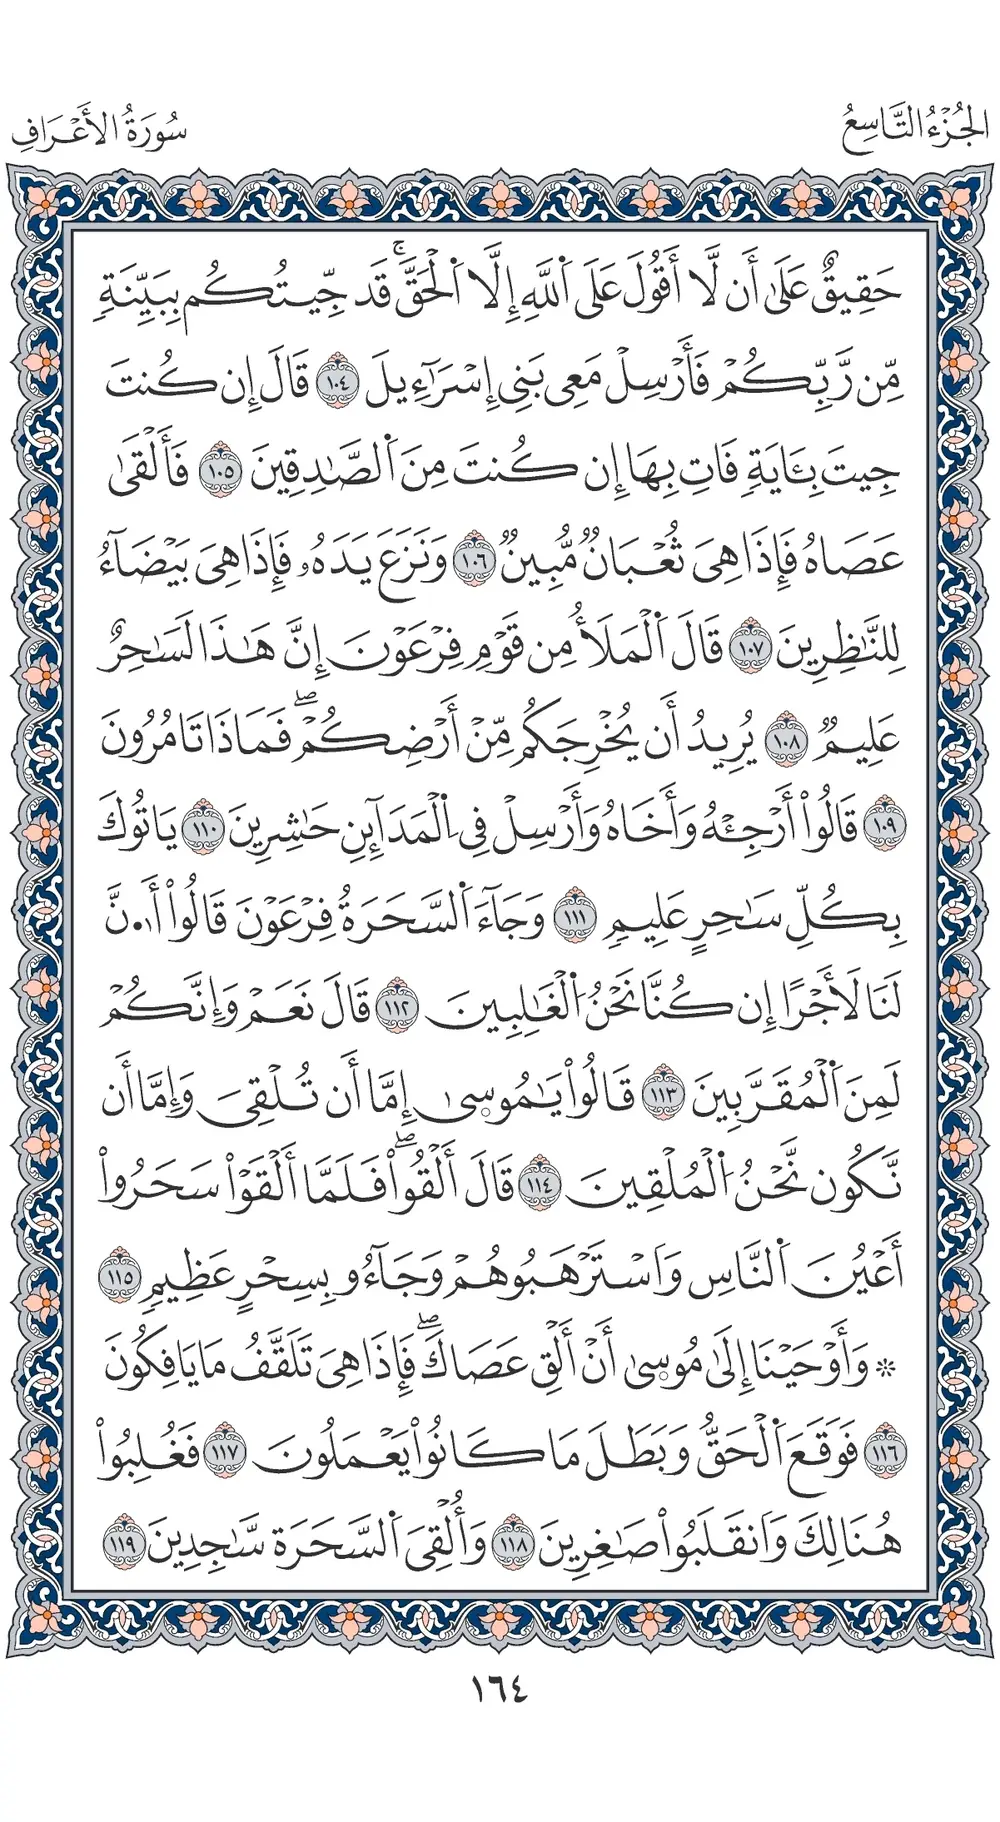 الجُزْءُ التَّاسِعُ
سُورَةُ الأَعْرَافِ
حَقِيقٌ عَلَىٰ أَن لَّا أَقُولَ عَلَى اَ۬للَّهِ إِلَّا اَ۬لْحَقَّۚ قَد جِّيتُكُم بِبَيِّنَةٖ
مِّن رَّبِّكُمْ فَأَرْسِلْ مَعِي بَنِي إِسْرَآءِيلَ ١٠٤ قَالَ إِن كُنتَ
جِيتَ بِـَٔايَةٖ فَاتِ بِهَا إِن كُنتَ مِنَ اَ۬لصَّٰدِقِينَ ١٠٥ فَأَلْقَىٰ
عَصَاهُ فَإِذَا هِيَ ثُعْبَانٞ مُّبِينٞ ١٠٦ وَنَزَعَ يَدَهُۥ فَإِذَا هِيَ بَيْضَآءُ
لِلنَّٰظِرِينَ ١٠٧ قَالَ اَ۬لْمَلَأُ مِن قَوْمِ فِرْعَوْنَ إِنَّ هَٰذَا لَسَٰحِرٌ
عَلِيمٞ ١٠٨ يُرِيدُ أَن يُخْرِجَكُم مِّنْ أَرْضِكُمْۖ فَمَاذَا تَامُرُونَ
١٠٩ قَالُواْ أَرْجِئْهُ وَأَخَاهُ وَأَرْسِلْ فِي اِ۬لْمَدَآئِنِ حَٰشِرِينَ ١١٠ يَاتُوكَ
بِكُلِّ سَٰحِرٍ عَلِيمٖ ١١١ وَجَآءَ اَ۬لسَّحَرَةُ فِرْعَوْنَ قَالُواْ أَا۬نَّ
لَنَا لَأَجْرًا إِن كُنَّا نَحْنُ اُ۬لْغَٰلِبِينَ ١١٢ قَالَ نَعَمْ وَإِنَّكُمْ
لَمِنَ اَ۬لْمُقَرَّبِينَ ١١٣ قَالُواْ يَٰمُوسۭىٰ إِمَّا أَن تُلْقِيَ وَإِمَّا أَن
نَّكُون نَّحْنُ اُ۬لْمُلْقِينَ ١١٤ قَالَ أَلْقُواْۖ فَلَمَّا أَلْقَوْاْ سَحَرُواْ
أَعْيُنَ اَ۬لنَّاسِ وَاَسْتَرْهَبُوهُمْ وَجَآءُو بِسِحْرٍ عَظِيمٖ ١١٥
۞ وَأَوْحَيْنَا إِلَىٰ مُوسۭىٰ أَنْ أَلْقِ عَصَاكَۖ فَإِذَا هِيَ تَلَقَّفُ مَا يَافِكُونَ
١١٦ فَوَقَعَ اَ۬لْحَقُّ وَبَطَلَ مَا كَانُواْ يَعْمَلُونَ ١١٧ فَغُلِبُواْ
هُنَالِكَ وَاَنقَلَبُواْ صَٰغِرِينَ ١١٨ وَأُلْقِيَ اَ۬لسَّحَرَة سَّٰجِدِينَ ١١٩
١٦٤